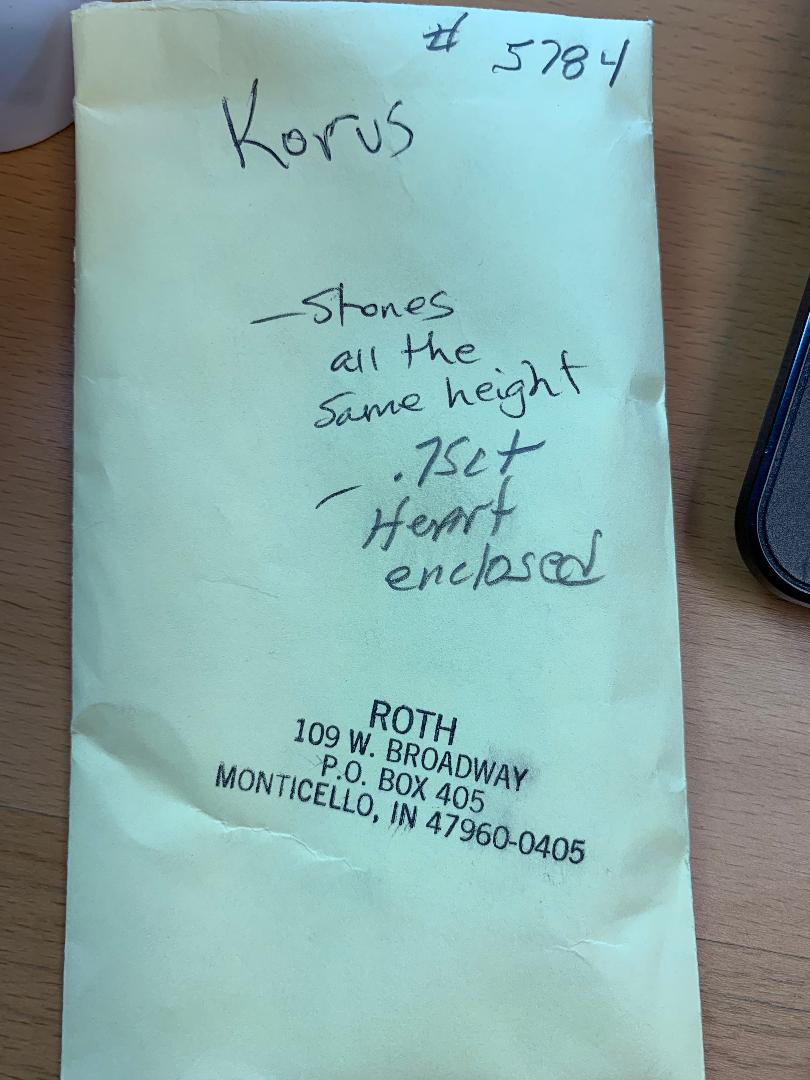 # 5784
Korus
- Stones
all the
same height
- .75ct
Heart
enclosed
ROTH
109 W. BROADWAY
P.O. BOX 405
MONTICELLO, IN 47960-0405